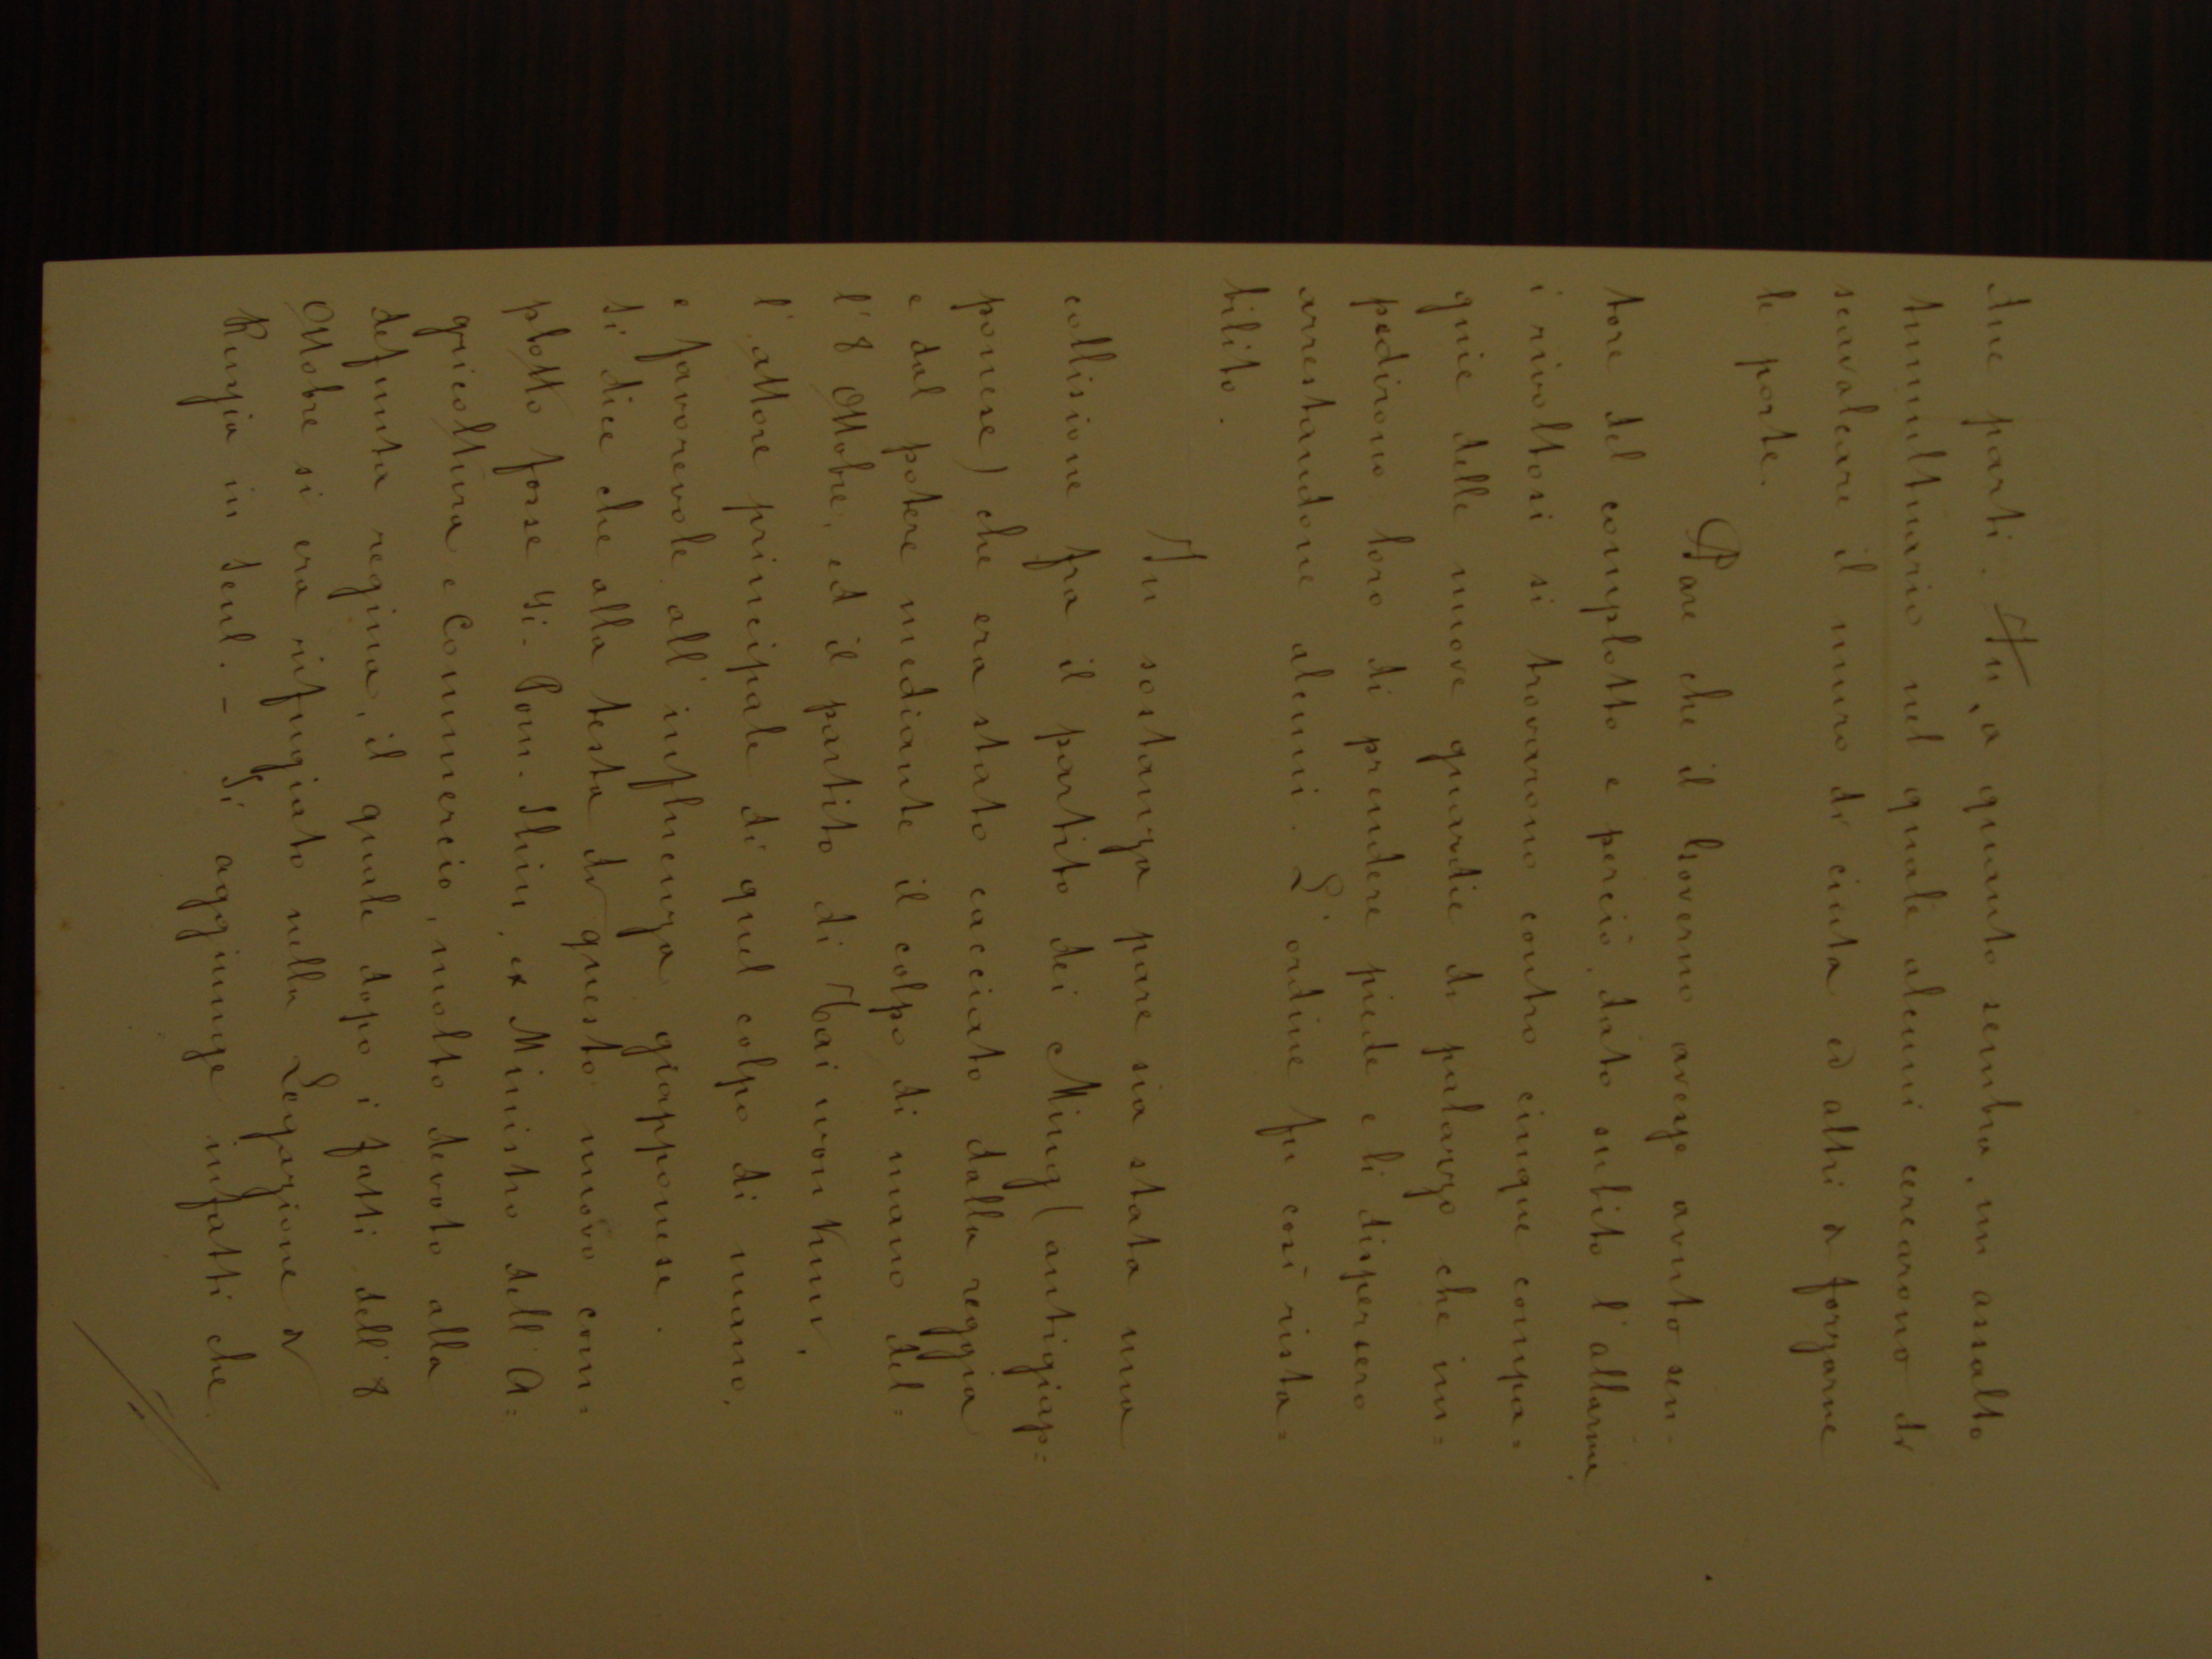 due parti. Fu, a quanto sembra, un assalto
tumultuario nel quale alcuni cercarono di
scavalcare il muro di cinta ed altri di forzarne
le porte.
Pare che il Governo avesse avuto sen-
tore del complotto e perciò, dato subito l'allarme,
i rivoltosi si trovarono contro cinque compa=
gnie delle nuove guardie di palazzo che im=
pedirono loro di prendere piede e li dispersero
arrestandone alcuni. L'ordine fu così rista=
bilito.
In sostanza pare sia stata una
collisione fra il partito dei Ming (antigiap=
ponese) che era stato cacciato dalla reggia
e dal potere mediante il colpo di mano del=
l'8 Ottobre, ed il partito di Tai won Kun,
l'attore principale di quel colpo di mano,
e favorevole all'influenza giapponese.
Si dice che alla testa di questo nuovo com=
plotto fosse Yi-Pom-Shin, ex Ministro dell'A=
gricoltura e Commercio, molto devoto alla
defunta regina, il quale dopo i fatti dell'8
Ottobre si era rifugiato nella Legazione di
Russia in Seul. - Si aggiunge infatti che